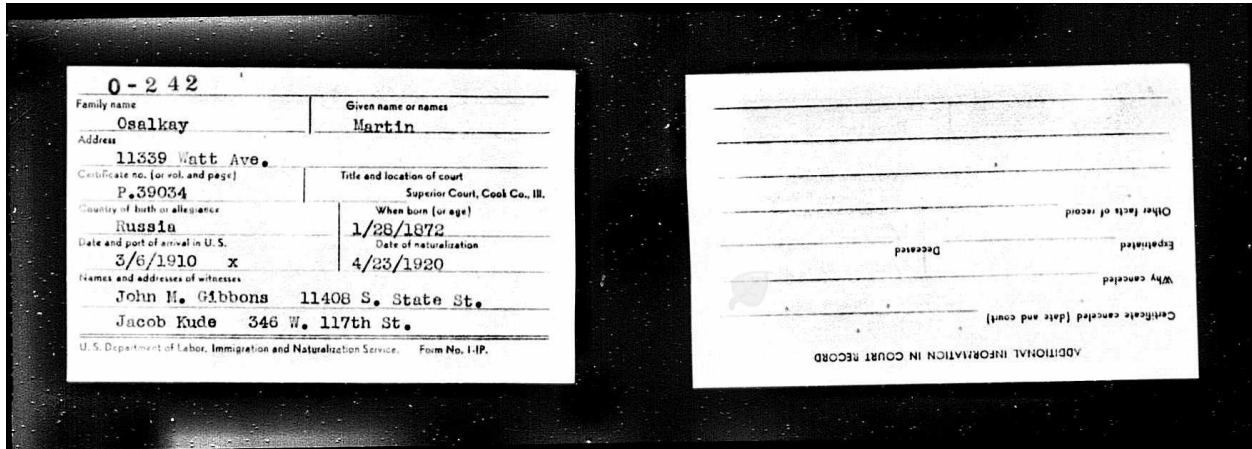 O-242
Family name Given name or names
Osalkay Martin
Address
11339 Watt Ave.
Certificate no. (or vol. and page) Title and location of court
P.39034 Superior Court, Cook Co., Ill.
Country of birth or allegiance When born (or age)
Russia 1/28/1872
Date and port of arrival in U. S. Date of naturalization
3/6/1910 x 4/23/1920
Names and addresses of witnesses
John M. Gibbons 11408 S. State St.
Jacob Kude 346 W. 117th St.
U. S. Department of Labor, Immigration and Naturalization Service. Form No. 1-IP.
ADDITIONAL INFORMATION IN COURT RECORD
Certificate canceled (date and court)
Why canceled
Expatriated Deceased
Other facts of record